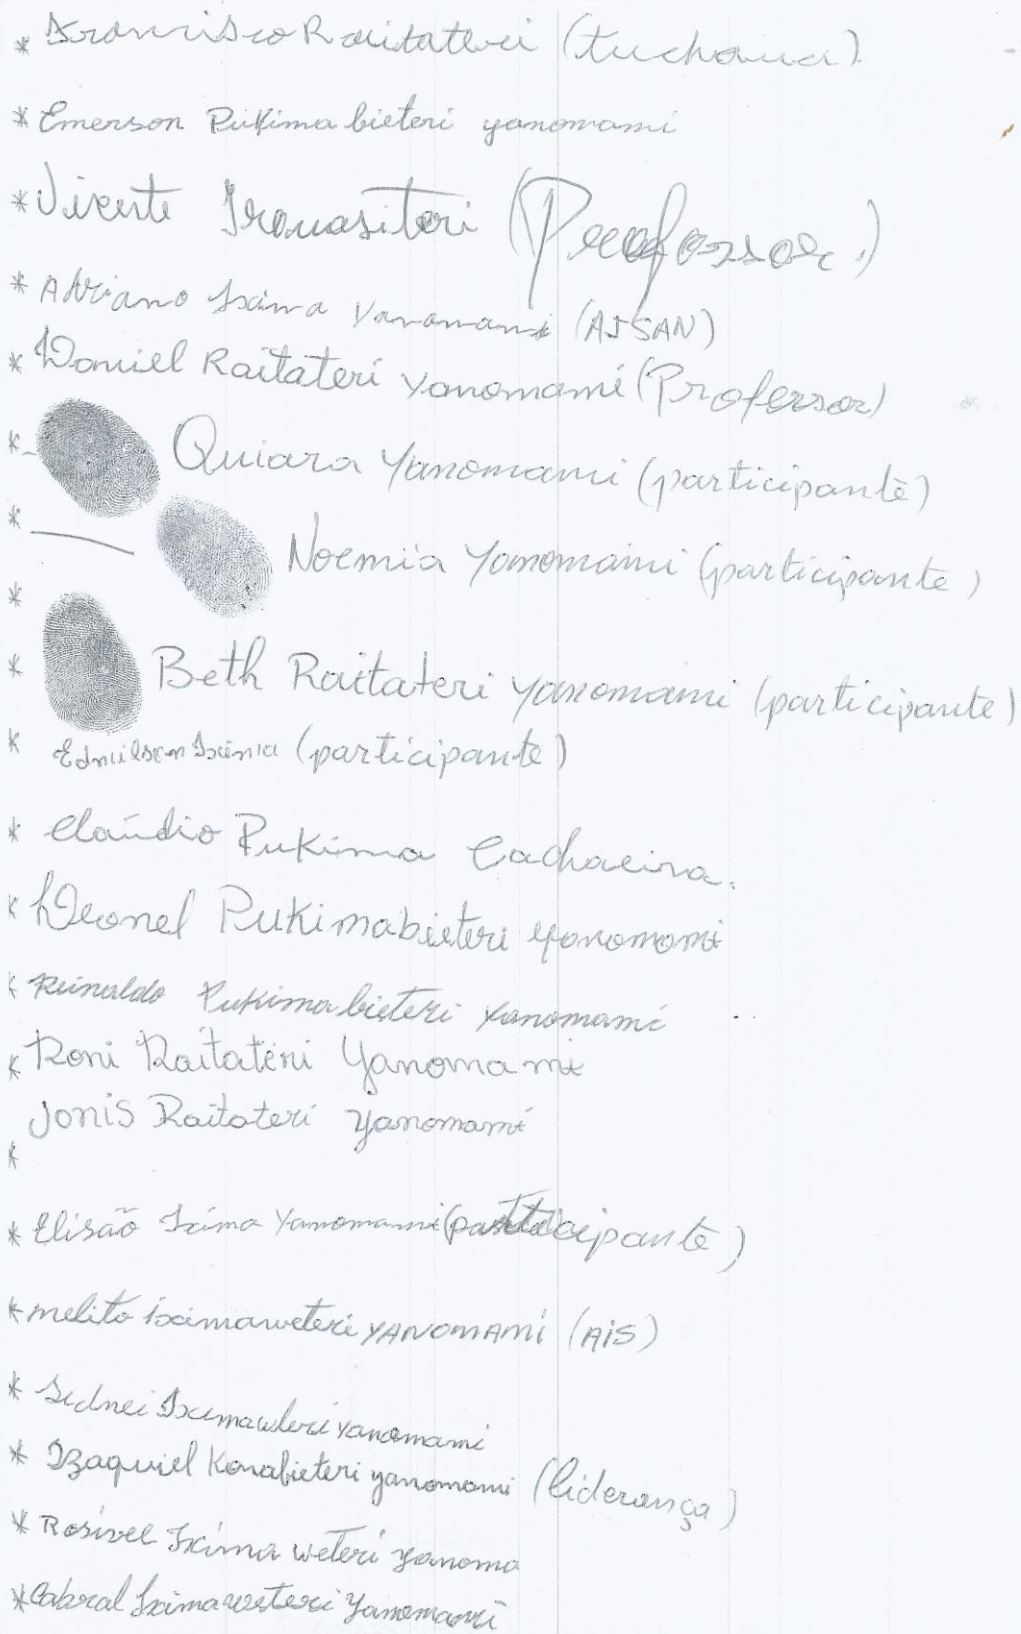 * Francisco Raitateri (tuchaua)
* Emerson Pukima bieteri yanomami
* Vicente Irouasiteri (Professor.)
* Adriano Ixima Yanomami (AISAN)
* Daniel Raitateri Yanomami (Professor)
* Quiara Yanomami (participante)
* Noemia Yanomami (participante)
*
* Beth Raitateri Yanomami (participante)
* Edmilson Ixima (participante)
* Claúdio Pukima Cachoeira.
* Deonel Pukimabieteri yanomami
* Reinaldo Pukima bieteri Yanomami
* Roni Raitateri Yanomami
Jonis Raitateri yanomami
*
* Elisão Ixima Yanomami (participante)
* melito iximaweteri YANOMAMI (AiS)
* Sidnei Iximaweteri yanomami
* Izaquiel Konabieteri yanomami (liderança)
* Rosivel Ixima weteri yanoma
* Cabral Iximaweteri Yanomami